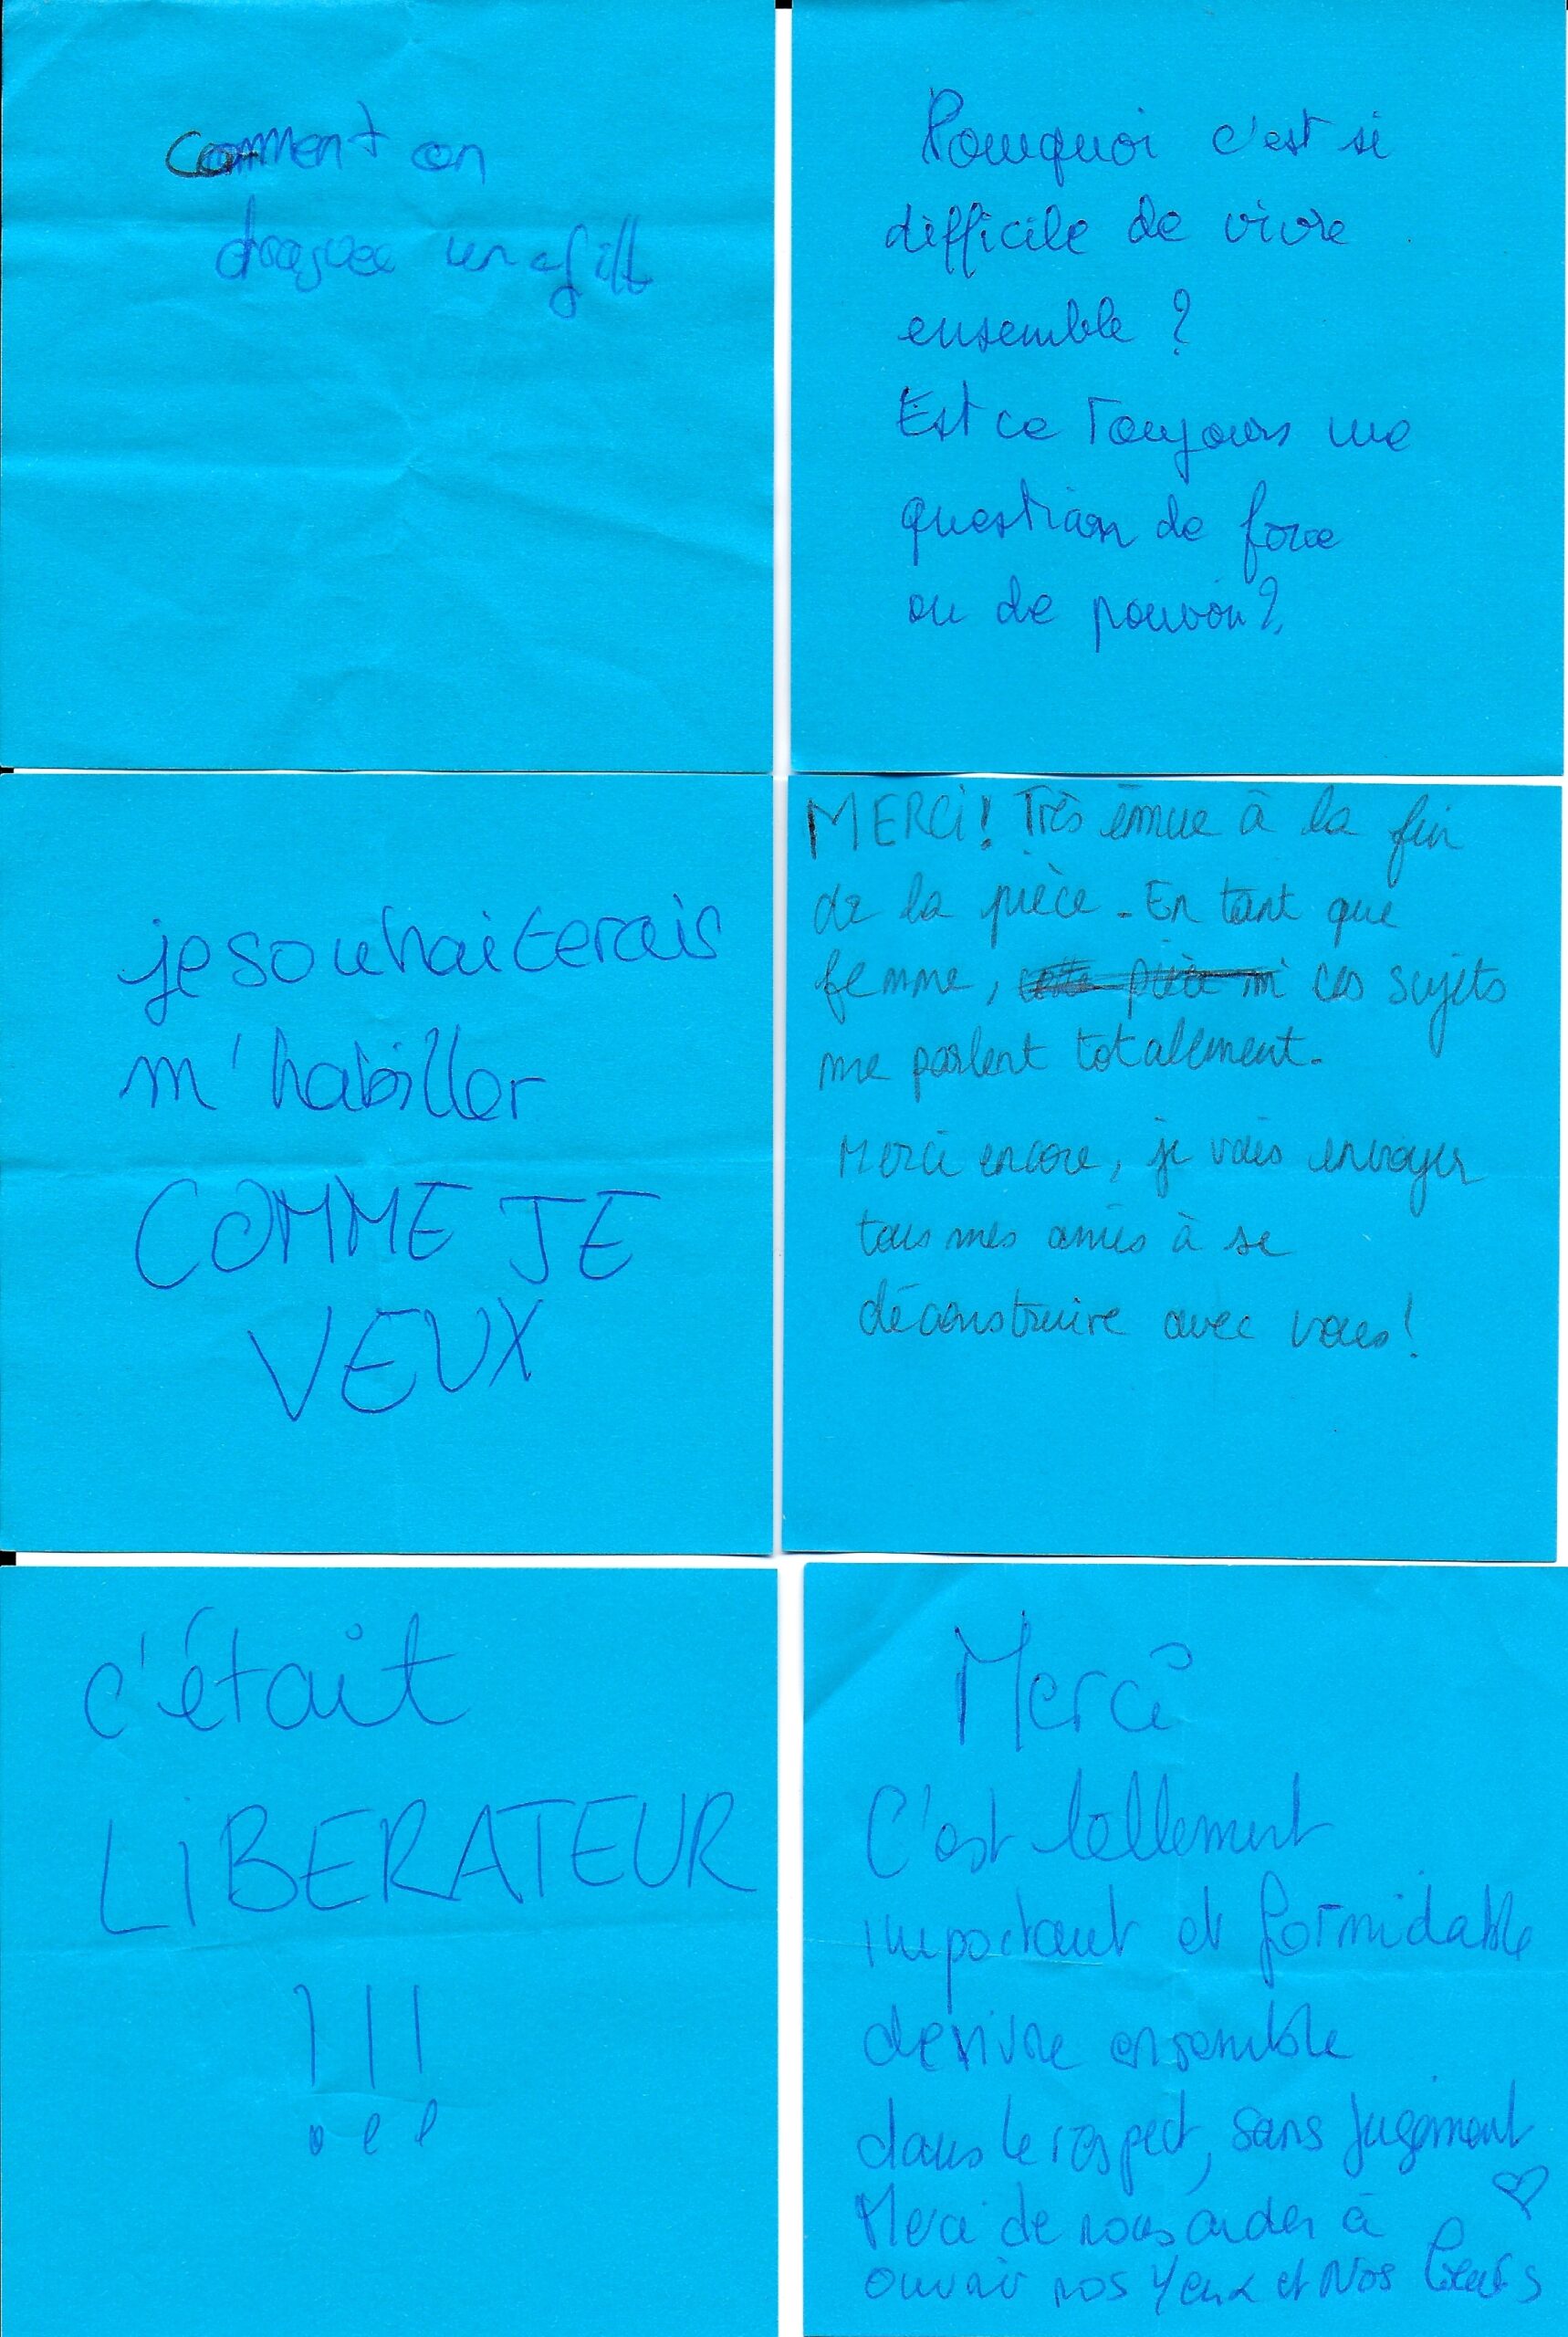 Comment on
draguer une fille
Pourquoi c'est si
difficile de vivre
ensemble ?
Est ce Toujours une
question de force
ou de pouvoir ?
je souhaiterais
m'habiller
COMME JE
VEUX
MERCi! Très émue à la fin
de la pièce. En tant que
femme, cette pièce m' ces sujets
me parlent totalement.
Merci encore, je vais envoyer
tous mes amis à se
déconstruire avec vous!
c'était
LiBERATEUR
!!!
Merci
C'est tellement
important et formidable
de vivre ensemble
dans le respect, sans jugement
Merci de nous aider à
ouvrir nos yeux et Nos Cœurs